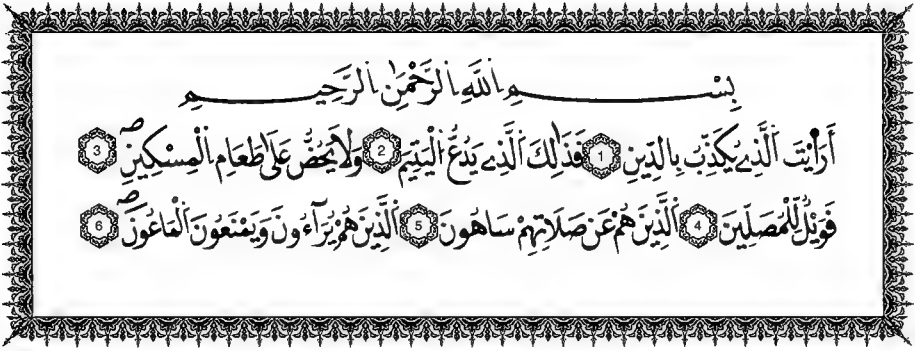 بِسْمِ اِ۬للَّهِ اِ۬لرَّحْمَٰنِ اِ۬لرَّحِيمِ
أَرَٰٓيْتَ اَ۬لَّذِے يُكَذِّبُ بِالدِّينِ 1 فَذَٰلِكَ اَ۬لَّذِے يَدُعُّ اُ۬لْيَتِيمَ 2 وَلَا يَحُضُّ عَلَىٰ طَعَامِ اِ۬لْمِسْكِينِ 3
فَوَيْلٌ لِّلْمُصَلِّينَ 4 اَ۬لَّذِينَ هُمْ عَن صَلَاتِهِمْ سَاهُونَ 5 اَ۬لذِينَ هُمْ يُرَآءُونَ وَيَمْنَعُونَ اَ۬لْمَاعُونَ 6